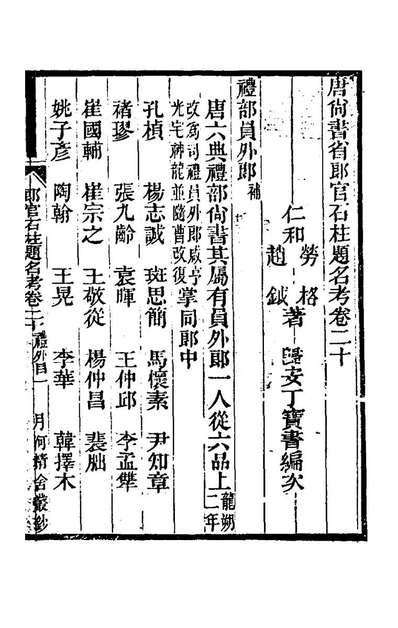 唐尚書省郎官石柱題名考卷二十
仁和 勞格 趙鉞 著 歸安丁寶書編次
禮部員外郎補
唐六典禮部尚書其屬有員外郎一人從六品上龍朔二年
改爲司禮員外郎咸亨光宅神龍並隨曹改復掌同郎中
孔楨 楊志誠 班思簡 馬懷素 尹知章
褚璆 張九齡 袁暉 王仲邱 李孟犨
崔國輔 崔宗之 王敬從 楊仲昌 裴朏
姚子彥 陶翰 王晃 李華 韓擇木
郎官石柱題名考卷二十 禮外目一 月河精舍叢鈔